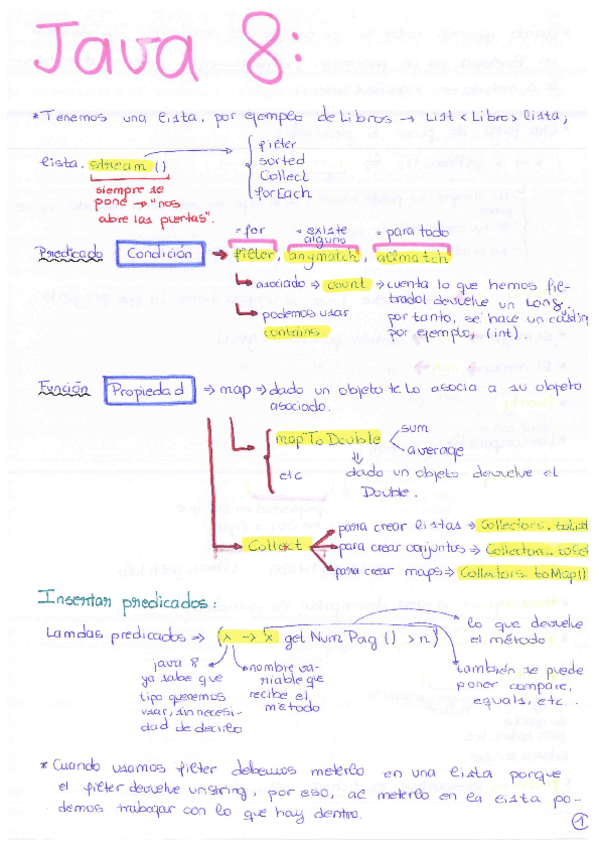 Java 8:
* Tenemos una lista, por ejemplo de Libros → List <Libro> lista;
lista. stream ()
filter
sorted
Collect
forEach
siempre se
pone → "nos
abre las puertas".
= for = existe alguno = para todo
Predicado Condición → filter, anymatch, allmatch
asociado ⇒ count ⇒ cuenta lo que hemos fil-
trado/ devuelve un Long.
por tanto, se hace un casting
por ejemplo, (int).
podemos usar
contains
Función Propiedad ⇒ map ⇒ dado un objeto te lo asocia a su objeto
asociado.
mapToDouble
sum
average
etc
dado un objeto devuelve el
Double.
Collect
para crear listas → Collectors.toList
para crear conjuntos → Collectors.toSet
para crear maps → Collectors.toMap()
Insertar predicados:
Lamdas predicados ⇒ (x -> x getNumPag () > n)
lo que devuelve
el método
java 8
ya sabe que
tipo queremos
usar, sin necesi-
dad de decirlo
nombre va-
riable que
recibe el
método
también se puede
poner compare,
equals, etc.
* Cuando usamos filter debemos meterlo en una lista porque
el filter devuelve un string, por eso, al meterlo en la lista po-
demos trabajar con lo que hay dentro.
1